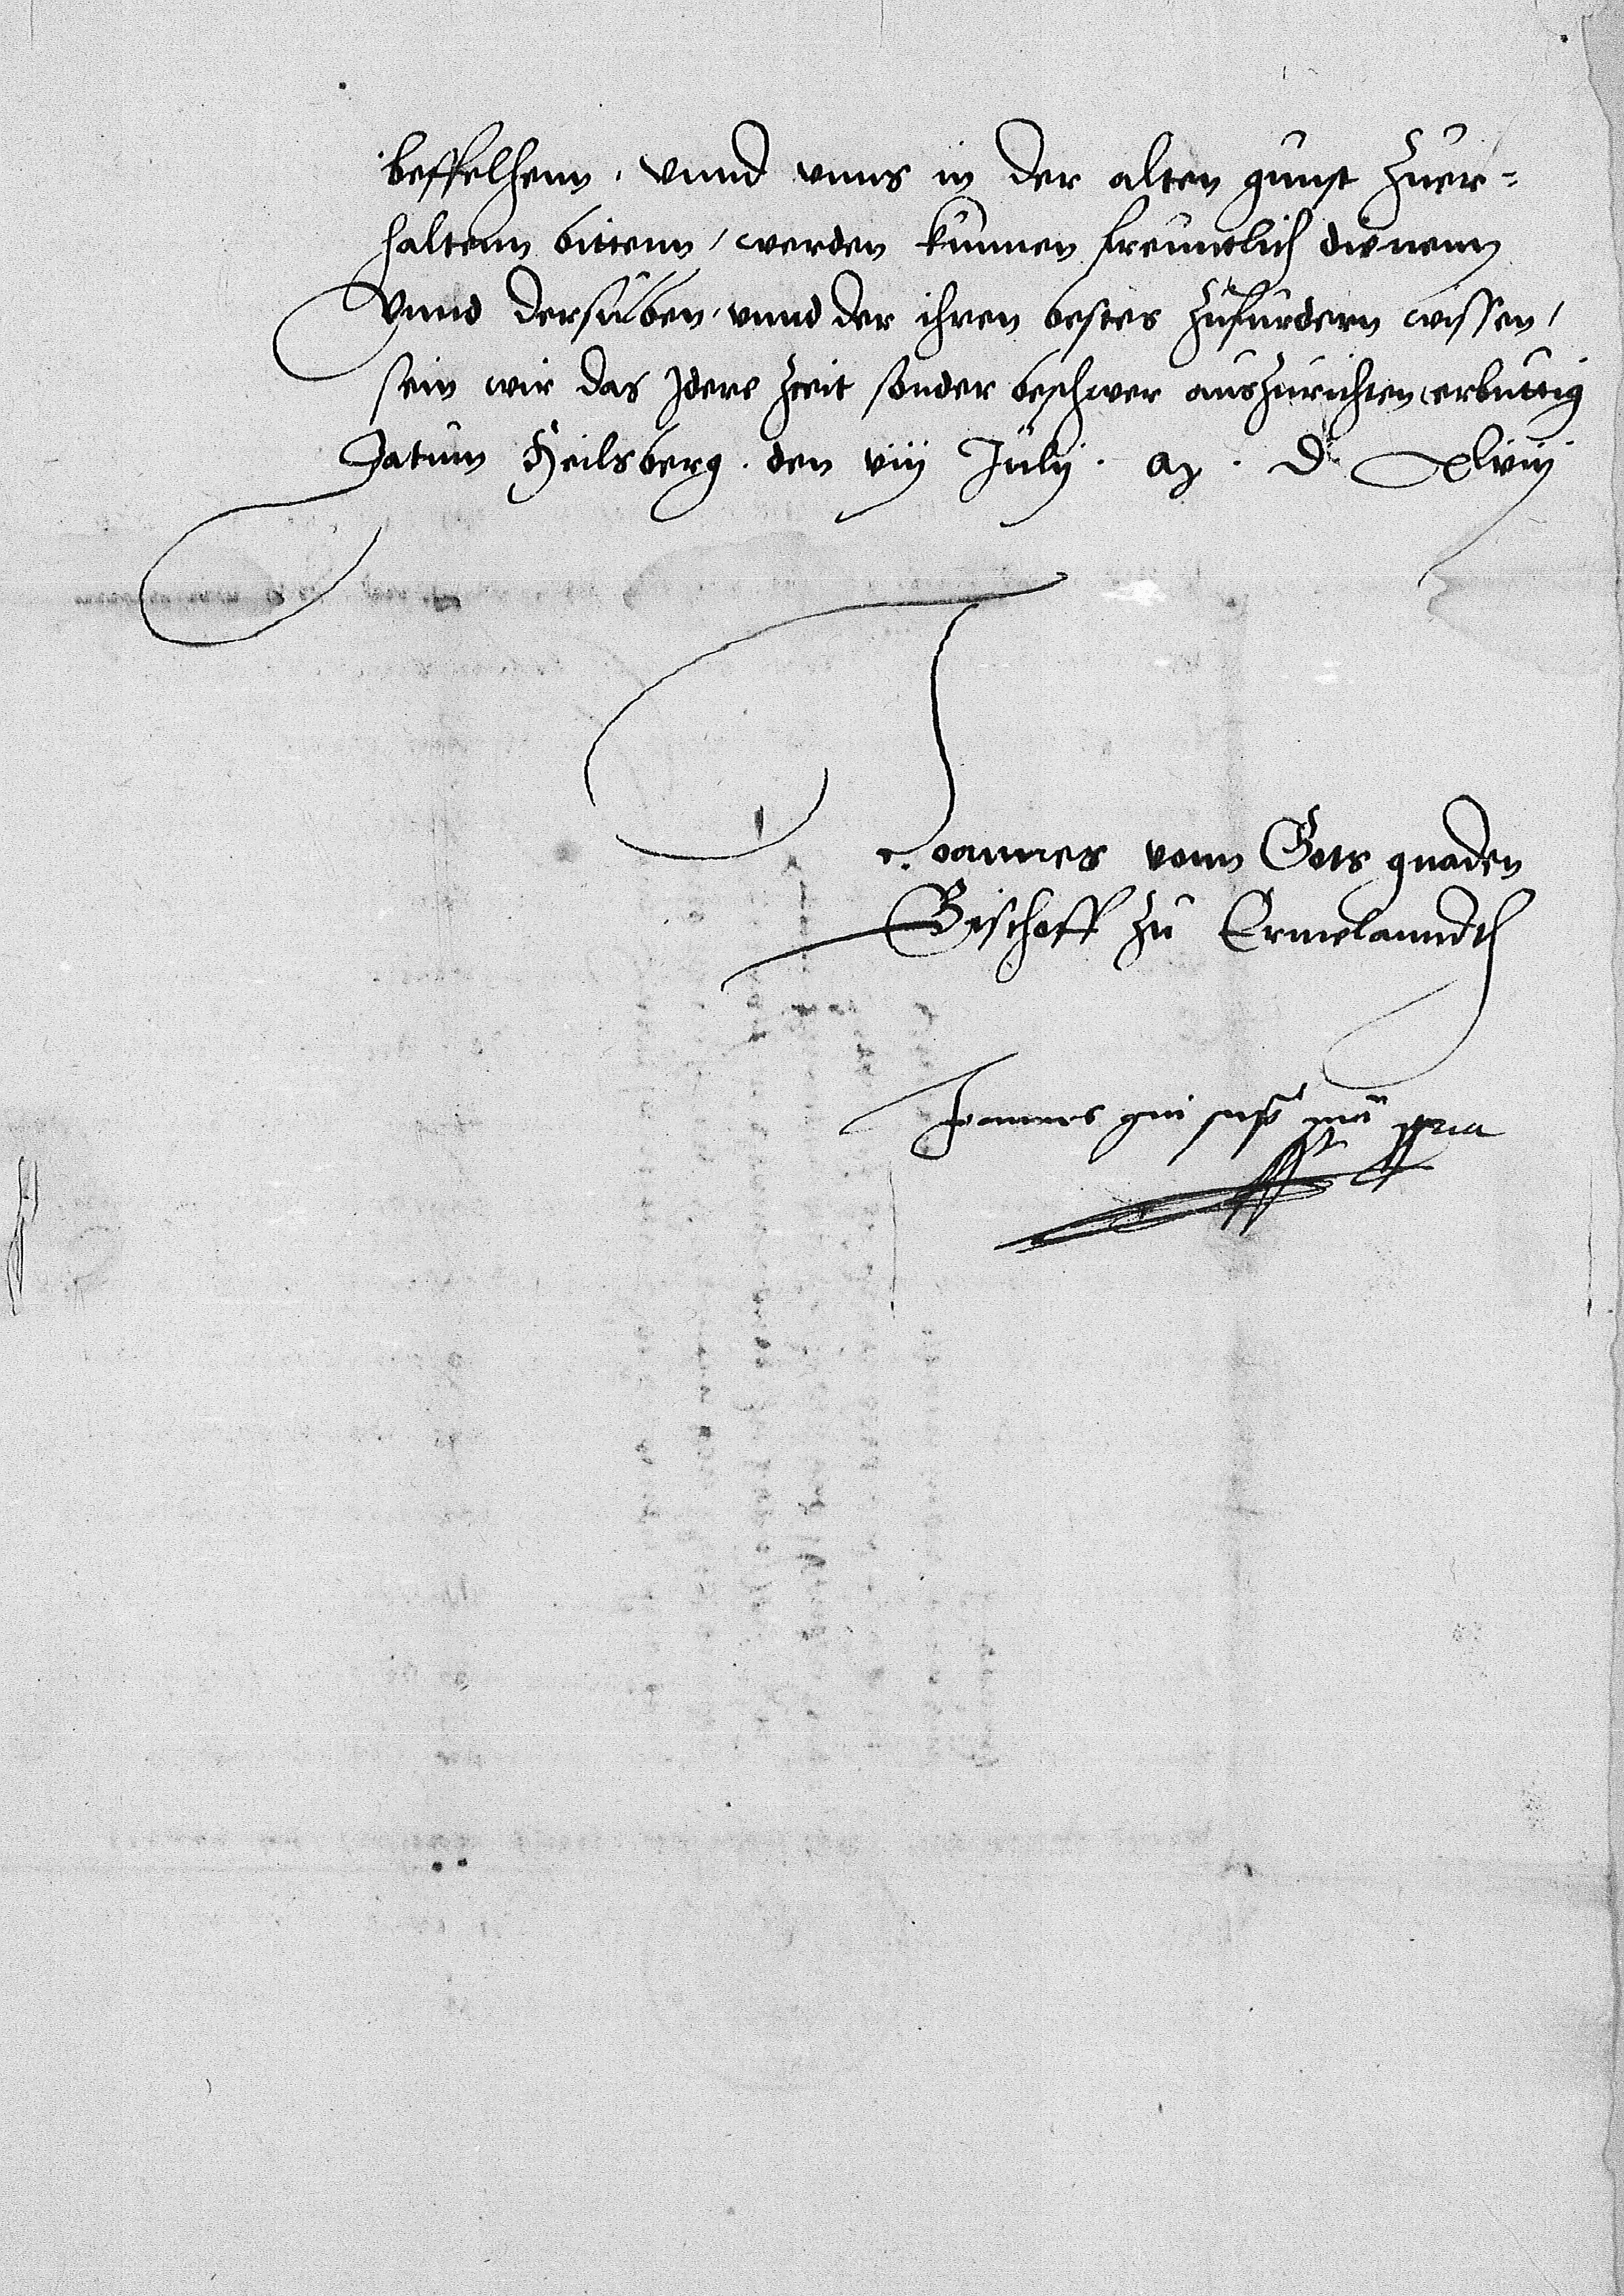 beffelhenn. Vnnd vnns in der alten gunst zuer=
haltenn bittenn / werden kunnen freuntlich dienenn
Vnnd derselben / vnnd der ihren bestes zufurdern wissen /
sein wir das Jdere zceit sonder beschwer auszurichten erbuttig
Datum Heilsberg. den viij Julij. D. Xlviij
Joannes vonn Gots gnaden
Bischoff zu Ermelanndth
Joannes qui supra manu ppria